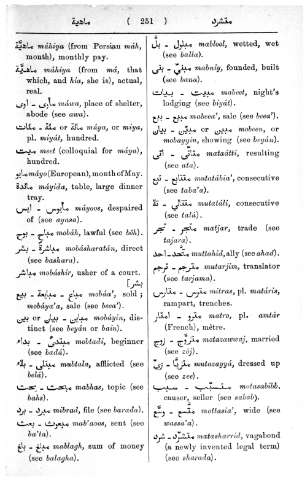 ماهية ( 251 ) متشرد
ماهيّة máhiya (from Persian máh,
month), monthly pay.
ماهية máhiya (from má, that
which, and hía, she is), actual,
real.
مأوى - اوى máwa, place of shelter,
abode (see awa).
مائة - مئات mía or máya, or míya,
pl. miyát, hundred.
ميت meet (colloquial for máya),
hundred.
مايو máyo (European), month of May.
مائدة máyida, table, large dinner
tray.
مأيوس - ايس máyoos, despaired
of (see ayasa).
مباح - بوح mobáh, lawful (see bóh).
مباشرة - بشر mobásharatán, direct
(see bashara).
مباشر mobáshir, usher of a court.
[بشر]
مباع - مبايعة - بيع mobáa', sold;
mobáya'a, sale (see beea').
مباين - بين or بيان mobáyin, dis-
tinct (see beyán or bain).
مبتدئ - بداء mobtadi, beginner
(see badá).
مبتلى - بلاء mobtala, afflicted (see
balá).
مبحث - بحث mabhas, topic (see
bahs).
مبرد - برد mibrad, file (see barada).
مبعوث - بعث mab'aoos, sent (see
ba'ta).
مبلغ - بلغ mablagh, sum of money
(see balagha).
مبلول - بلّ mablool, wetted, wet
(see balla).
مبنيّ - بنى mabniy, founded, built
(see bana).
مبيت - بيات mabeet, night's
lodging (see biyát).
مبيع - بيع mabeea', sale (see beea').
مبين - بيان or مبيّن mobeen, or
mobayyin, showing (see bayán).
متأتّي - أتى mataátti, resulting
(see ata).
متتابع - تبع motatábia', consecutive
(see taba'a).
متتالي - تلا mutatáli, consecutive
(see talá).
متجر - تجر matjar, trade (see
tajara).
متّحد - احد muttahid, ally (see ahad).
مترجم - ترجم mutarjim, translator
(see tarjama).
متراس - متاريس mitras, pl. matáris,
rampart, trenches.
مترو - امتار metro, pl. amtár
(French), mètre.
متزوّج - زوج motazawwaj, married
(see zój).
متزيّ - زيّ mutazayyá, dressed up
(see zee).
متسبّب - سبب motasabbib,
causer, seller (see sabab).
متّسع - وسع mottasia', wide (see
wassa'a).
متشرّد - شرد matasharrid, vagabond
(a newly invented legal term)
(see sharada).